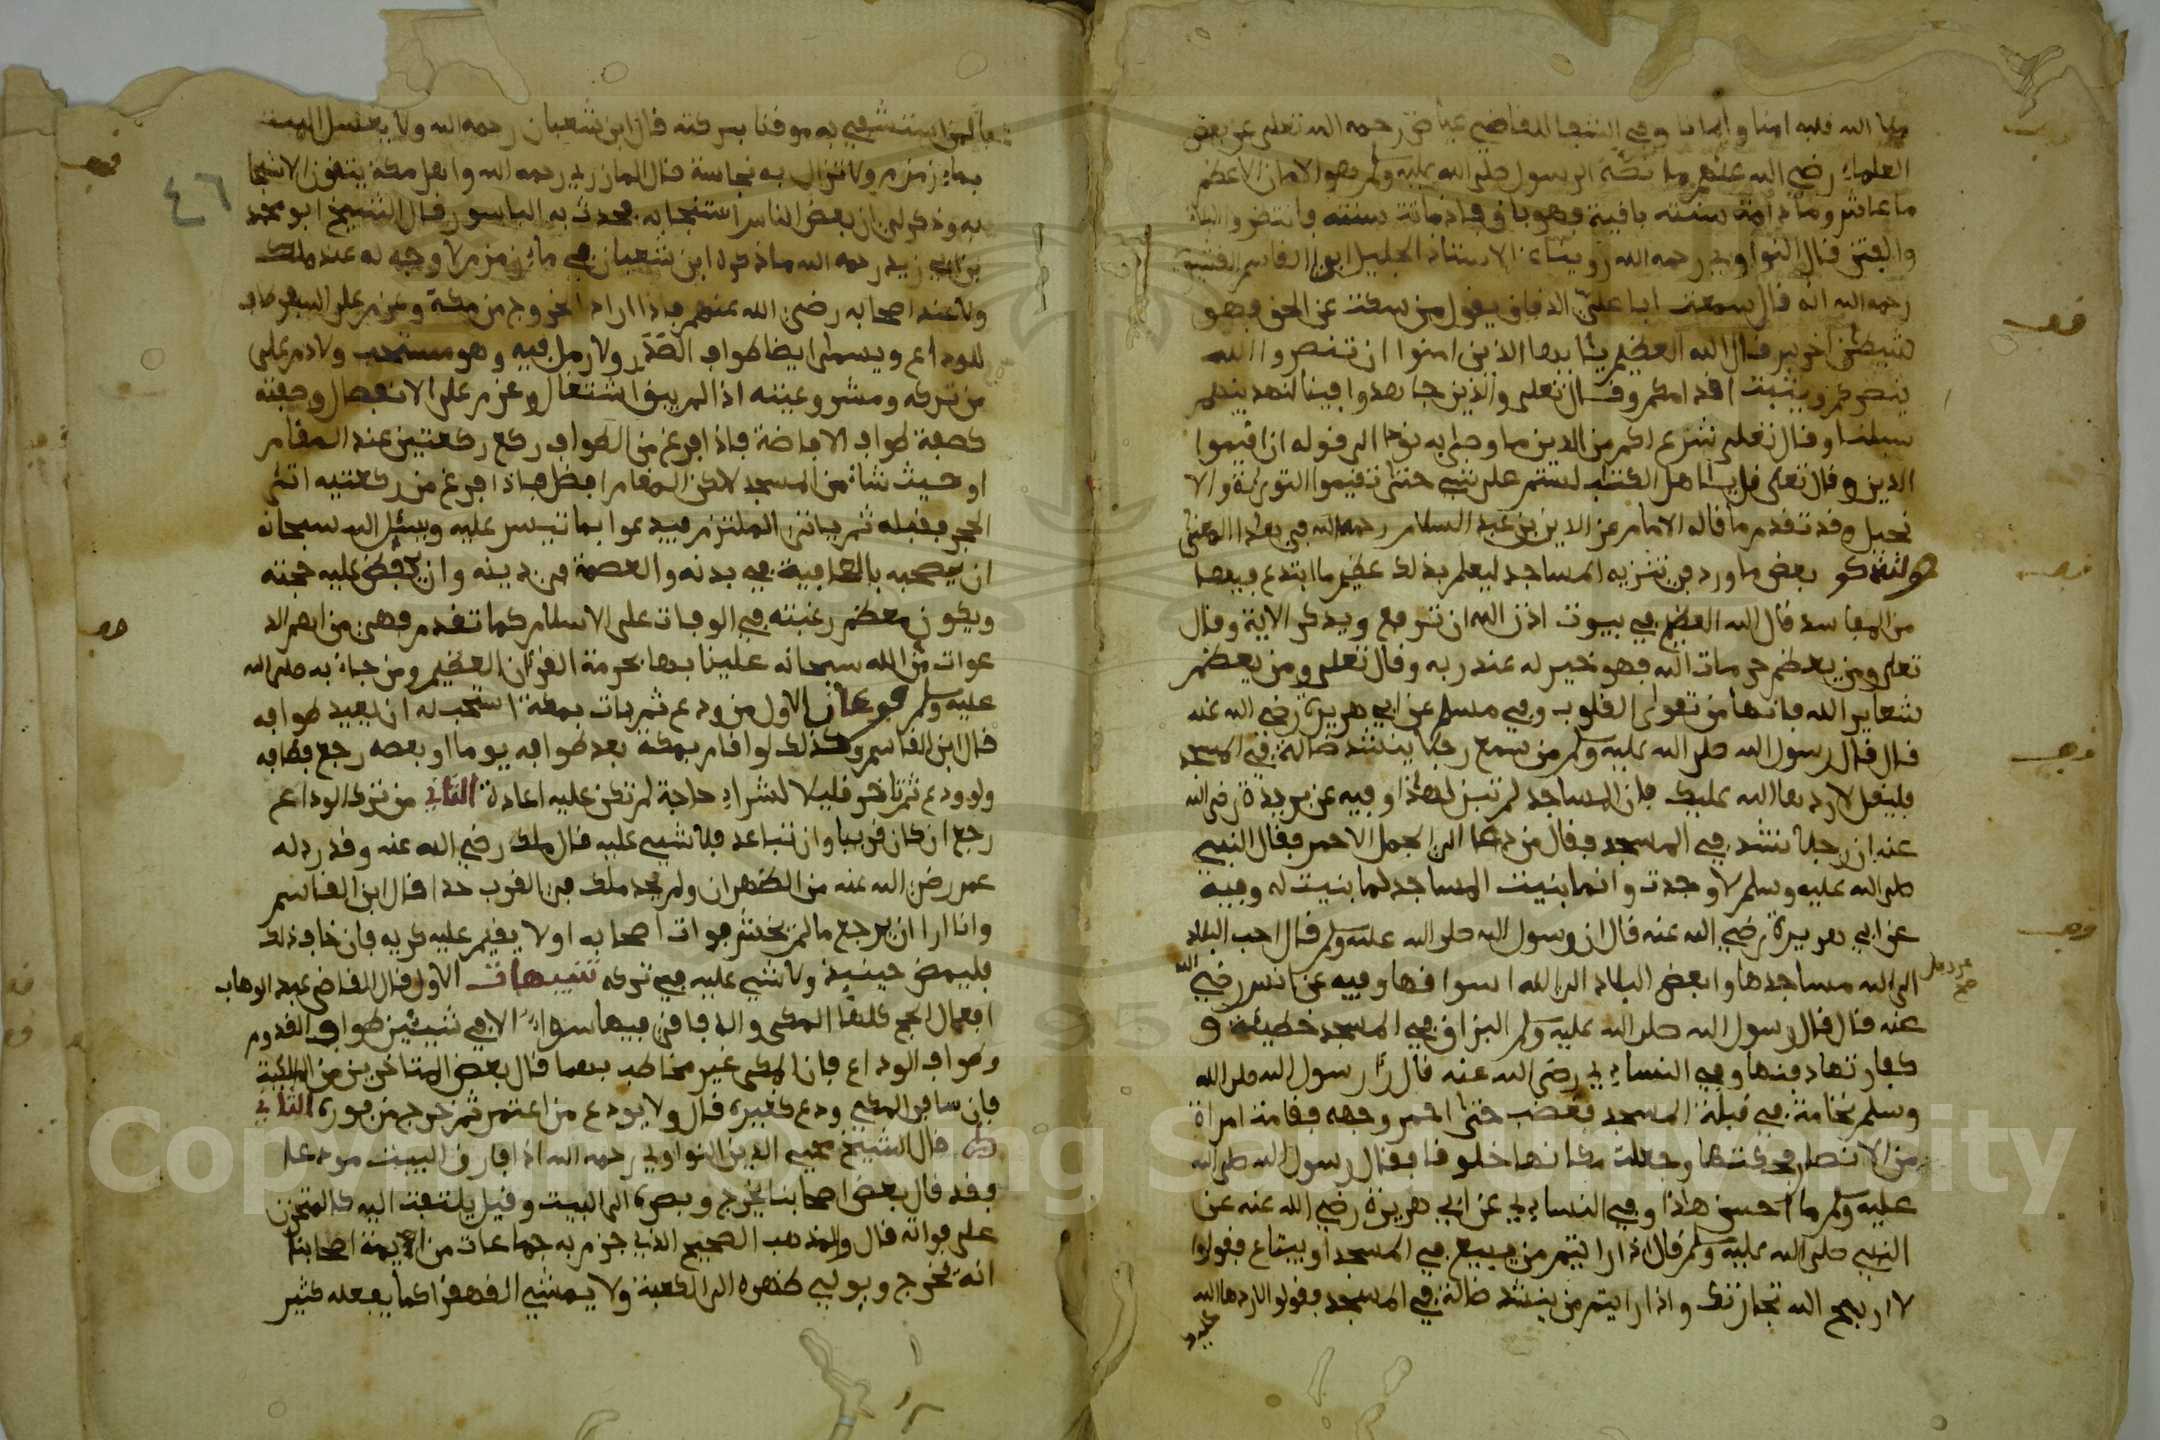 ملأ الله قلبه امنا وايمانا وفي الشفا للقاضي عياض رحمه الله تعلى عن بعض
العلماء رضي الله عنهم ما نصه الرسول صلى الله عليه وسلم هو الامان الاعظم
ما عاش وما دامت سنته باقية فهو باق فاذا ماتت سنته فانتظروا البلاء
والفتن قال النواوي رحمه الله روينا عن الاستاذ الجليل ابو القاسم القشيري
رحمه الله انه قال سمعت ابا علي الدقاق يقول من سكت عن الحق فهو
شيطن اخرس قال الله العظيم يايها الذين امنوا ان تنصروا الله
ينصركم ويثبت اقدامكم وقال تعلى والذين جاهدوا فينا لنهدينهم
سبلنا وقال تعلى شرع لكم من الدين ما وصى به نوحا الى قوله ان اقيموا
الدين وقال تعلى قل ياهل الكتب لستم على شيء حتى تقيموا التورية والا
نجيل وقد تقدم ما قاله الامام عز الدين بن عبد السلام رحمه الله في هذا المعنى
ولنذكر بعض ما ورد في تنزيه المساجد ليعلم بذلك عظم ما ابتدع فيها
من المفاسد قال الله العظيم في بيوت اذن الله ان ترفع ويذكر الاية وقال
تعلى ومن يعظم حرمات الله فهو خير له عند ربه وقال تعلى ومن يعظم
شعاير الله فانها من تقوى القلوب وفي مسلم عن ابي هريرة رضي الله عنه
قال قال رسول الله صلى الله عليه وسلم من سمع رجلا ينشد ضالة في المسجد
فليقل لا ردها الله عليك فان المساجد لم تبن لهذا وفيه عن بريدة رضي الله
عنه ان رجلا نشد في المسجد فقال من دعا الى الجمل الاحمر فقال النبي
صلى الله عليه وسلم لا وجدت وانما بنيت المساجد لما بنيت له وفيه
عن ابي هريرة رضي الله عنه قال ان رسول الله صلى الله عليه وسلم قال احب البلاد
الى الله مساجدها وابغض البلاد الى الله اسواقها وفيه عن انس رضي الله
عنه قال قال رسول الله صلى الله عليه وسلم البزاق في المسجد خطيئة و
كفارتها دفنها وفي النساءي رضي الله عنه قال رأ رسول الله صلى الله
وسلم نخامة في قبلة المسجد فغضب حتى احمر وجهه فقامت امراة
من الانصار فحكتها وجعلت مكانها خلوقا فقال رسول الله صلى الله
عليه وسلم ما احسن هذا وفي النساءي عن ابي هريرة رضي الله عنه عن
النبي صلى الله عليه وسلم قال اذا رايتم من يبيع في المسجد او يبتاع فقولوا
لا اربح الله تجارتك واذا رايتم من ينشد ضالة في المسجد فقولوا لا ردها الله
عليك
٤٦
لمن استشفي به موقنا ببركته قال ابن شعبان رحمه الله ولا يغسل الميت
بماء زمزم ولا تزال به نجاسة قال المازري رحمه الله واهل مكة يتقون الاستنجا
به وذكر لي ان بعض الناس استنجا به فحدث به الباسور قال الشيخ ابو محمد
بن ابي زيد رحمه الله ما ذكره ابن شعبان في ماء زمزم لا وجه له عند ملك
ولا عند اصحابه رضي الله عنهم فاذا اراد الخروج من مكة وعزم على السفر طاف
للوداع ويسمى ايضا طواف الصدر ولا رمل فيه وهو مستحب ولا دم على
من تركه ومشروعيته اذا لم يبق اشتغال وعزم على الانفصال وصفته
كصفة طواف الافاضة فاذا فرغ من الطواف ركع ركعتين عند المقام
او حيث شاء من المسجد لاكن المقام افضل فاذا فرغ من ركعتيه اتى
الحجر فقبله ثم ياتي الملتزم فيدعوا بما تيسر عليه ويسئل الله سبحانه
ان يصحبه بالعافية في بدنه والعصمة في دينه وان يحفظ عليه حجته
ويكون معظم رغبته في الوفات على الاسلام كما تقدم فهي من اهم الد
عوات من الله سبحانه علينا بها بحرمة القرءان العظيم ومن جاء به صلى الله
عليه وسلم فرعان الاول من ودع ثم بات بمكة استحب له ان يعيد طوافه
قال ابن القاسم وكذلك لو اقام بمكة بعد طوافه يوما او بعضه رجع فطافه
ولو ودع ثم تاخر قليلا لشراء حاجة لم تكن عليه اعادة الثاني من ترك الوداع
رجع ان كان قريبا وان تباعد فلا شيء عليه قال ملك رضي الله عنه وقد رد له
عمر رضي الله عنه من الظهران ولم يحد ملك في القرب حدا قال ابن القاسم
وانا ارا ان يرجع ما لم يخش فوات اصحابه او لا يقيم عليه كريه فان خاف ذلك
فليمض حينيذ ولا شيء عليه في تركه تنبيهات الاول قال القاضي عبد الوهاب
افعال الحج كلها المكي والافاقي فيها سواء الا في شيئين طواف القدوم
وطواف الوداع فان المكي غير مخاطب بهما قال بعض المتاخرين من المالكية
فان سافر المكي ودع كغيره قال ولا يودع من اعتمر ثم خرج من فوره الثاني
قال الشيخ محيي الدين النواوي رحمه الله اذا فارق البيت مودعا
فقد قال بعض اصحابنا يخرج وبصره الى البيت وقيل يلتفت اليه كالمتحزن
على فواته قال والمذهب الصحيح الذي جزم به جماعات من ايمة اصحابنا
انه يخرج ويولي ظهره الى الكعبة ولا يمشي القهقرا كما يفعله كثير
Copyright © King Saud University